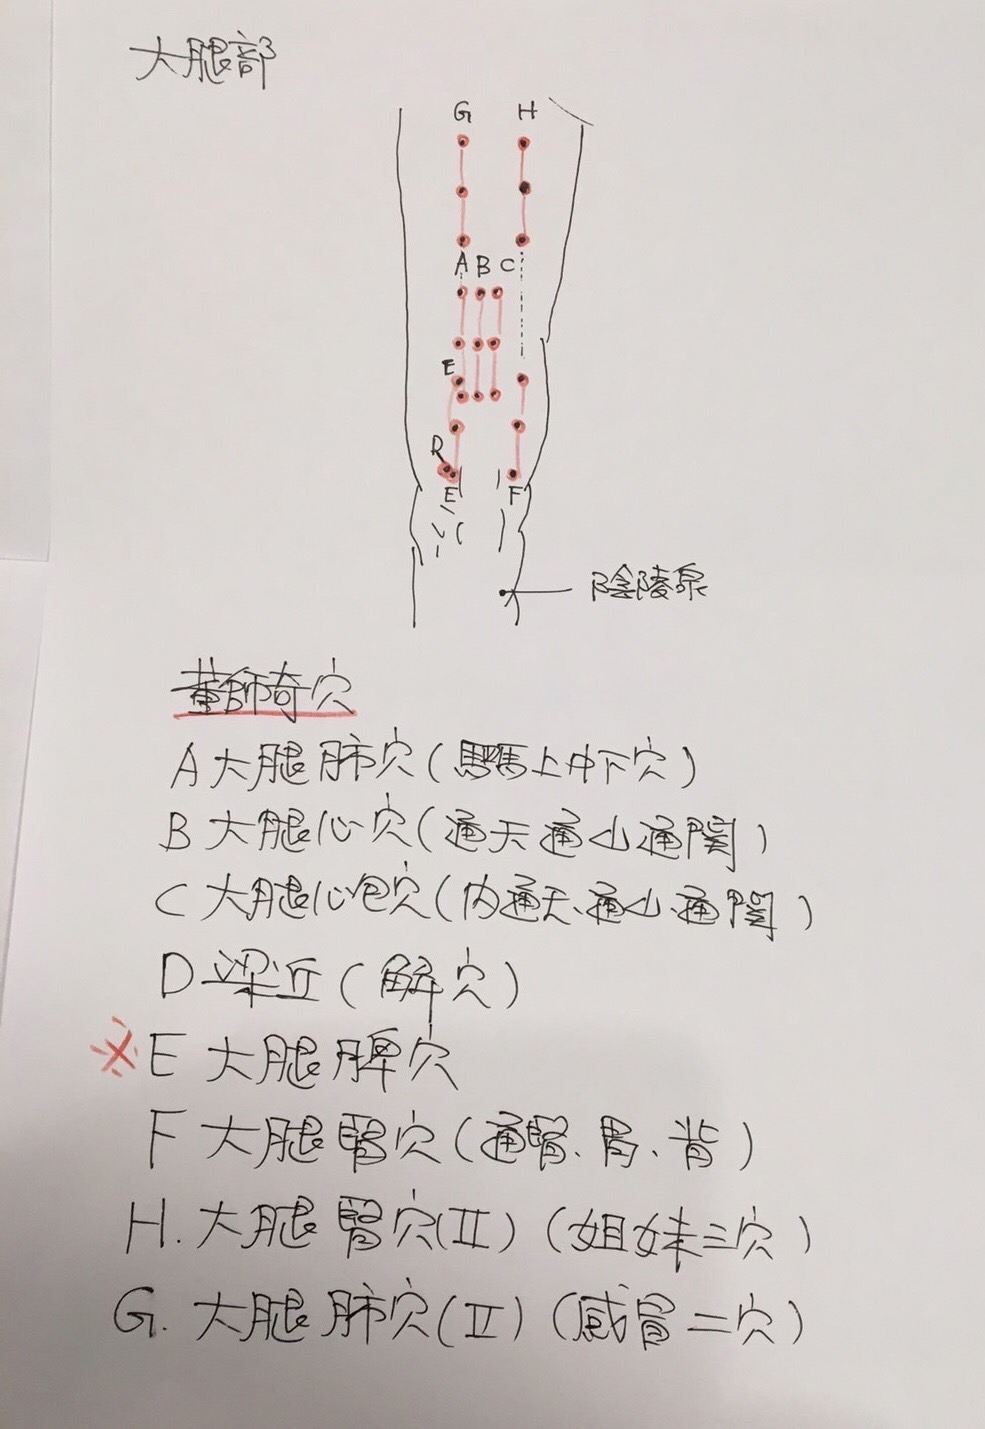 大腿部
G H
A B C
E
R
E F
陰陵泉
董師奇穴
A 大腿肺穴(駟馬上中下穴)
B 大腿心穴(通天通山通関)
C 大腿心包穴(内通天、通山、通関)
D 梁丘(解穴)
※ E 大腿脾穴
F 大腿腎穴(通腎、胃、背)
H. 大腿腎穴(II)(姐妹三穴)
G. 大腿肺穴(II)(感冒二穴)